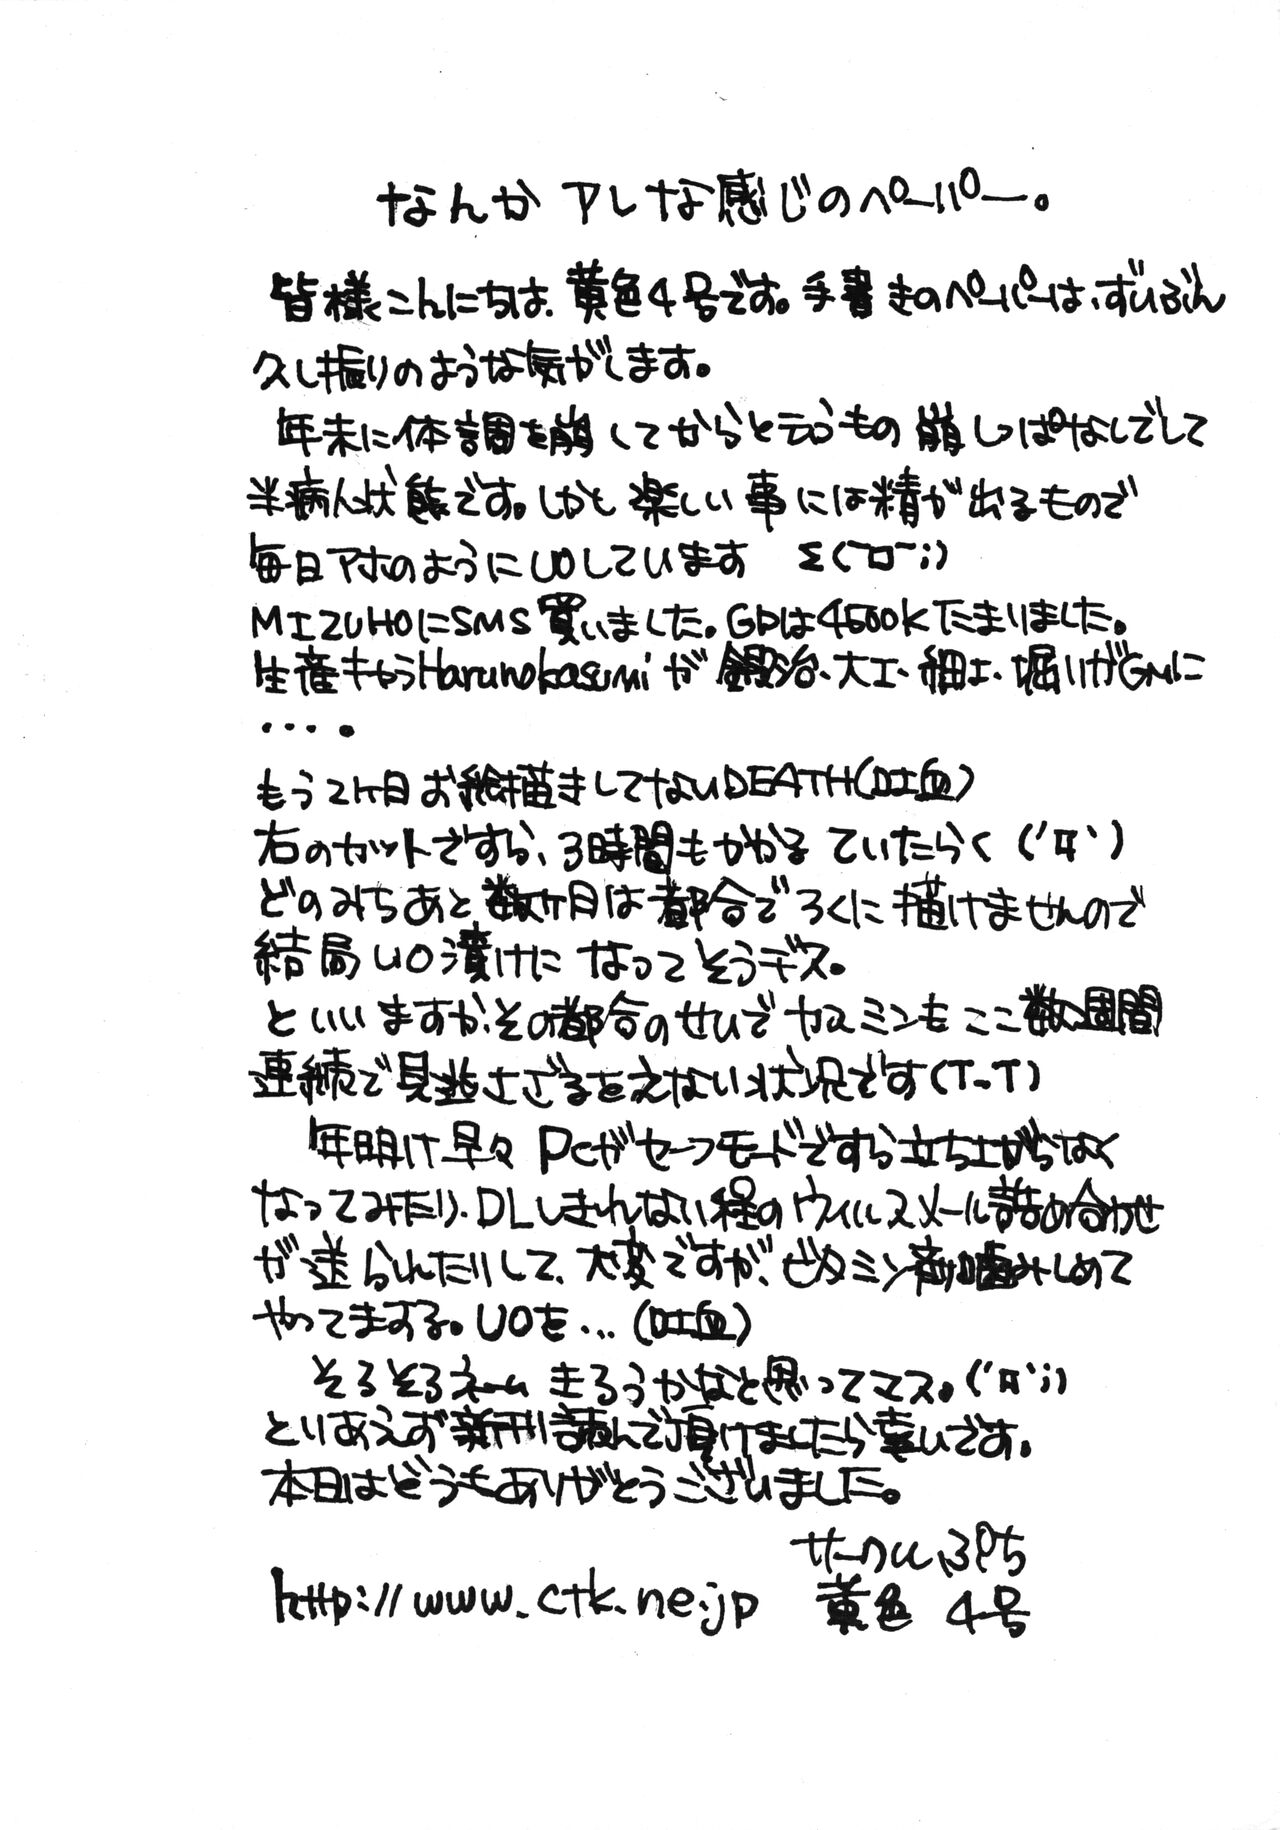 なんかアレな感じのペーパー。
皆様こんにちは、黄色4号です。手書きのペーパーは、ずいぶん
久し振りのような気がします。
年末に体調を崩してからと云うもの崩しっぱなしでして
半病人状態です。しかし楽しい事には精が出るもので
毎日アホのようにUOしています Σ(￣□￣;)
MIZUHOにSMS買いました。GPは4500Kたまりました。
生産キャラHarunokasumiが鍛冶、大工、細工、堀りがGMに
・・・・。
もう2ヶ月お絵描きしてないDEATH(吐血)
右のカットですら、3時間もかかるていたらく(´Д`)
どのみちあと数ヶ月は都合でろくに描けませんので
結局UO漬けになってそうデス。
といいますか、その都合のせいでカスミンもここ数週間
連続で見逃さざるをえない状況です(T-T)
年明け早々PCがセーフモードですら立ち上がらなく
なってみたり、DLしきれない程のウィルスメール詰め合わせ
が送られたりして、大変ですが、ビタミン剤噛みしめて
やってますする。UOを…(吐血)
そろそろネームきろうかなと思ってマス。(´Д`;)
とりあえず新刊読んで頂けましたら幸いです。
本日はどうもありがとうございました。
サークルぷち
http://www.ctk.ne.jp 黄色4号